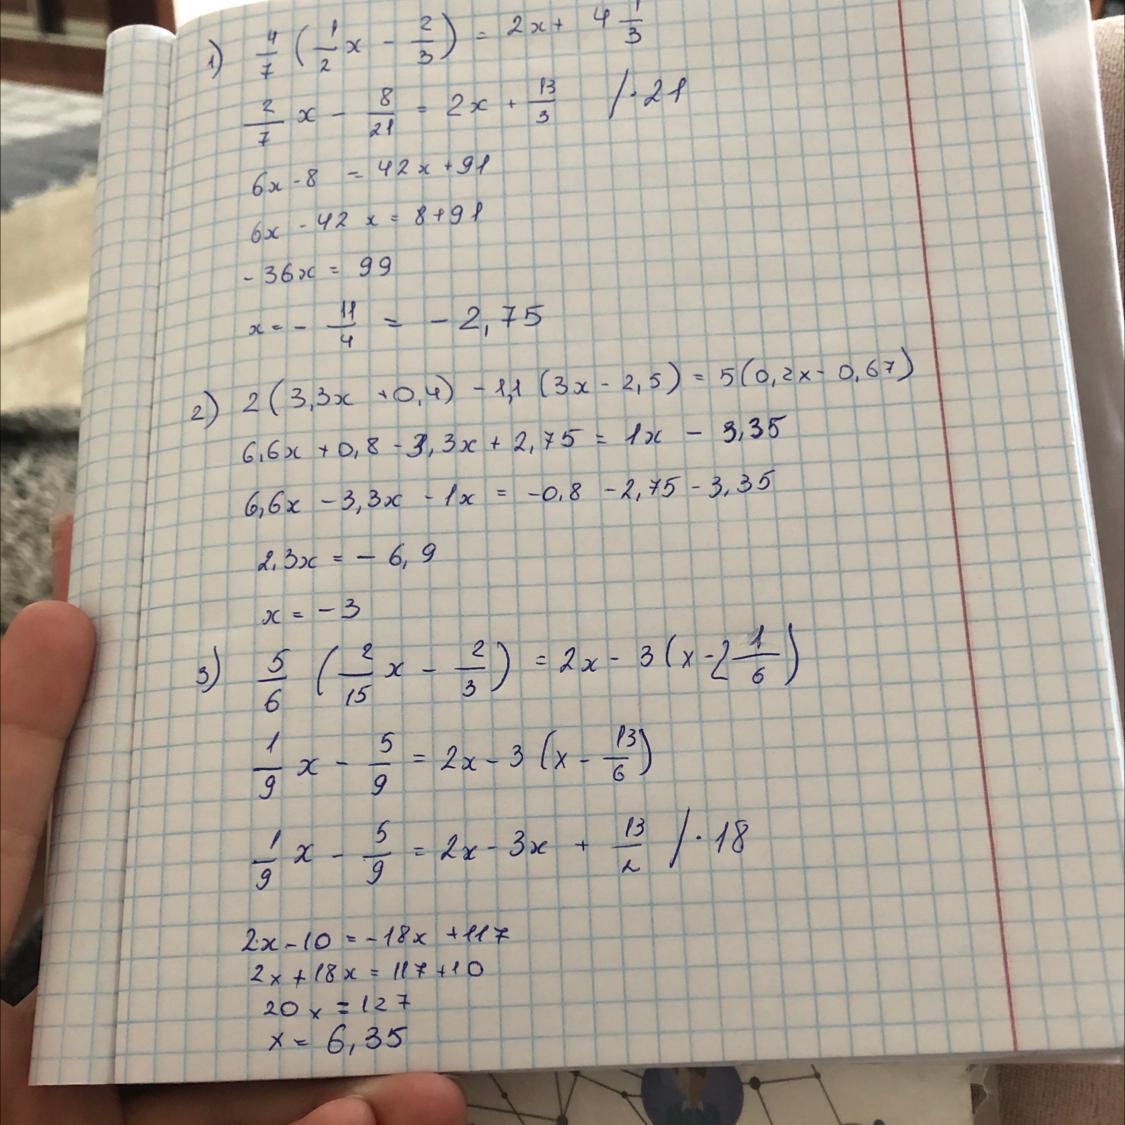 1) 4/7 (1/2 x - 2/3) = 2x + 4 1/3
2/7 x - 8/21 = 2x + 13/3 /·21
6x - 8 = 42x + 91
6x - 42x = 8 + 91
- 36x = 99
x = - 11/4 = - 2,75
2) 2(3,3x + 0,4) - 1,1 (3x - 2,5) = 5(0,2x - 0,67)
6,6x + 0,8 - 3,3x + 2,75 = 1x - 3,35
6,6x - 3,3x - 1x = -0,8 - 2,75 - 3,35
2,3x = - 6,9
x = - 3
3) 5/6 (2/15 x - 2/3) = 2x - 3(x - 2 1/6)
1/9 x - 5/9 = 2x - 3 (x - 13/6)
1/9 x - 5/9 = 2x - 3x + 13/2 /·18
2x - 10 = -18x + 117
2x + 18x = 117 + 10
20x = 127
x = 6,35